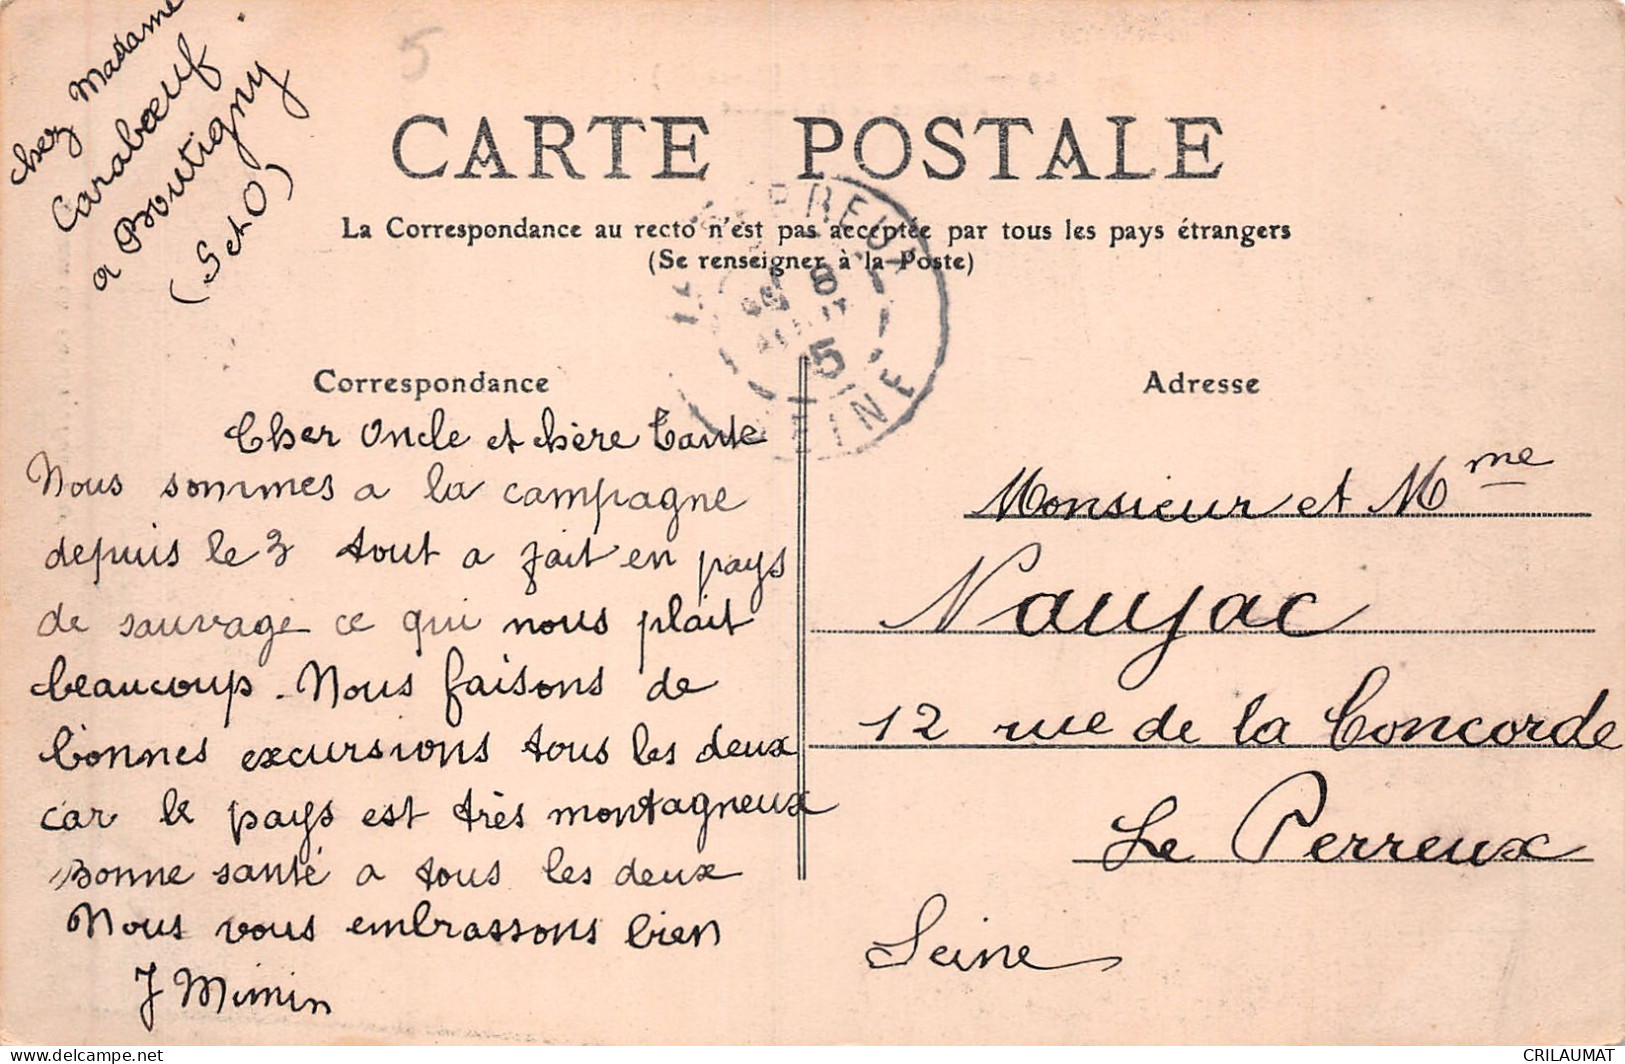 chez Madame
Carabœuf
a Boutigny
(S et O)
5
CARTE POSTALE
La Correspondance au recto n'est pas acceptée par tous les pays étrangers
(Se renseigner à la Poste)
LE PERREUX
8
5
SEINE
Correspondance
Cher Oncle et chère Tante
Nous sommes a la campagne
depuis le 3 tout a fait en pays
de sauvage ce qui nous plait
beaucoup. Nous faisons de
bonnes excursions tous les deux
car le pays est très montagneux
Bonne santé a tous les deux
Nous vous embrassons bien
J Mimin
Adresse
Monsieur et Mme
Naujac
12 rue de la Concorde
Le Perreux
Seine
www.delcampe.net
CRILAUMAT